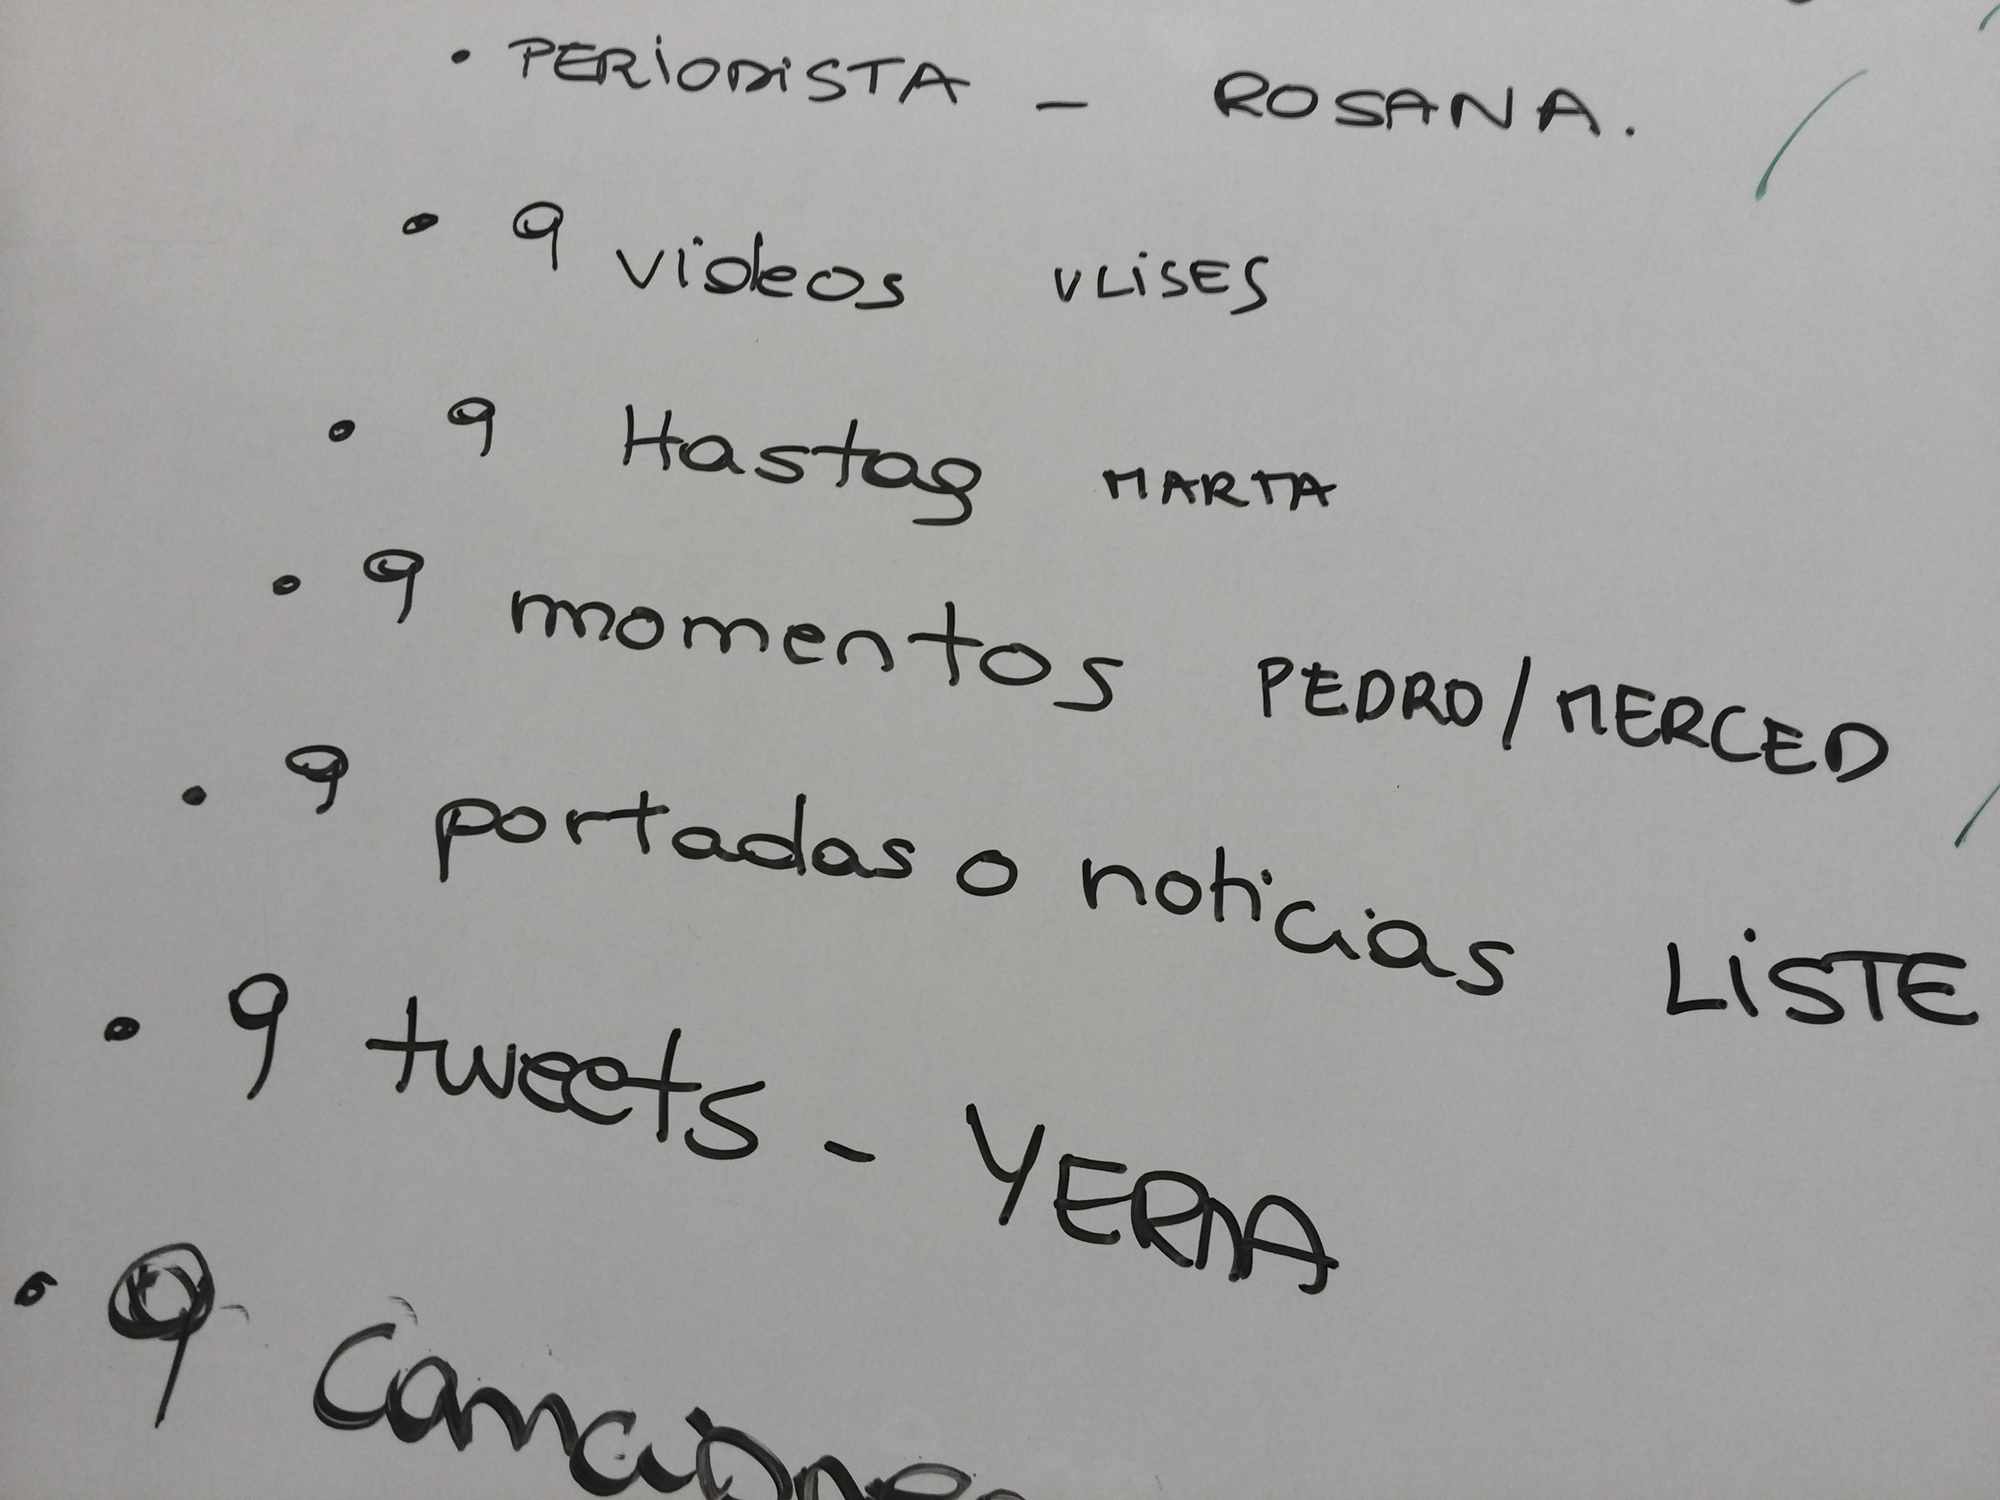 • PERIODISTA - ROSANA.
• 9 videos ULISES
• 9 Hastag MARTA
• 9 momentos PEDRO/MERCED
• 9 portadas o noticias LISTE
• 9 tweets - YERMA
• 9 Canciones